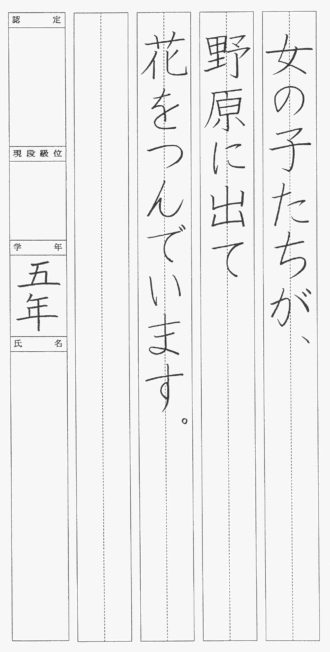 女の子たちが、
野原に出て
花をつんでいます。
認定
現段級位
学年
五年
氏名